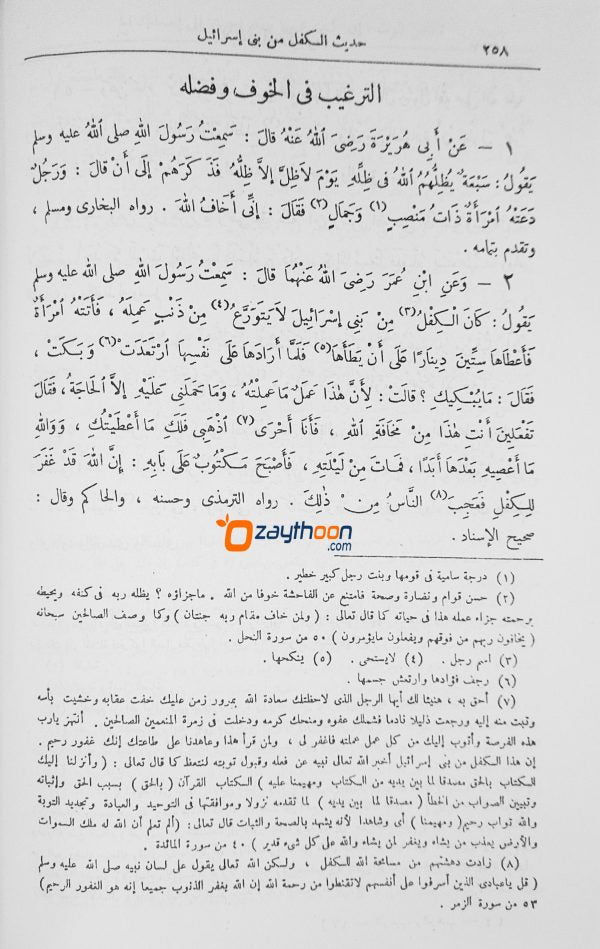 ٢٥٨ حديث الكفل من بنى إسرائيل
الترغيب فى الخوف وفضله
١ – عَنْ أَبِى هُرَيْرَةَ رَضِىَ اللهُ عَنْهُ قالَ : سَمِعْتُ رَسُولَ اللهِ صلى اللهُ عليه وسلم
يَقُولُ : سَبْعَةٌ يُظِلُّهُمُ اللهُ فى ظِلِّهِ يَوْمَ لاَظِلَّ إلاَّ ظِلُّهُ فَذَ كَرَهُمْ إلَى أَنْ قالَ : وَرَجُلٌ
دَعَتْهُ امْرَأَةٌ ذَاتُ مَنْصِبٍ (١) وَجَمَالٍ (٢) فَقَالَ : إِنِّى أَخَافُ اللهَ . رواه البخارى ومسلم ،
وتقدم بتمامه .
٢ – وَعَنِ ابْنِ عُمَرَ رَضِىَ اللهُ عَنْهُمَا قالَ : سَمِعْتُ رَسُولَ اللهِ صلى الله عليه وسلم
يَقُولُ : كانَ الْكِفْلُ (٣) مِنْ بَنِى إِسْرَائِيلَ لاَ يَتَوَرَّعُ (٤) مِنْ ذَنْبٍ عَمِلَهُ ، فَأَتَتْهُ امْرَأَةٌ
فَأَعْطَاهَا سِتِّينَ دِينَارًا عَلَى أَنْ يَطَأَهَا (٥) فَلَمَّا أَرَادَهَا عَلَى نَفْسِهَا ارْتَعَدَتْ (٦) وَبَكَتْ ،
فَقَالَ : مَايُبْكِيكِ ؟ قالَتْ : لِأَنَّ هٰذَا عَمَلٌ مَاعَمِلْتُهُ ، وَمَا حَمَلَنِى عَلَيْهِ إلاَّ الْحَاجَةُ، فَقَالَ
تَفْعَلِينَ أَنْتِ هٰذَا مِنْ مَخَافَةِ اللهِ ، فَأَنَا أَحْرَى (٧) اذْهَبِى فَلَكِ مَا أَعْطَيْتُكِ ، وَوَاللهِ
مَا أَعْصِيهِ بَعْدَهَا أَبَدًا ، فَمَاتَ مِنْ لَيْلَتِهِ ، فَأَصْبَحَ مَكْتُوبٌ عَلَى بَابِهِ : إِنَّ اللهَ قَدْ غَفَرَ
لِلْكِفْلِ فَعَجِبَ (٨) النَّاسُ مِنْ ذٰلِكَ . رواه الترمذى وحسنه ، والحاكم وقال :
صحيح الإسناد .
zaythoon
.com
(١) درجة سامية فى قومها وبنت رجل كبير خطير .
(٢) حسن قوام ونضارة وصحة فامتنع عن الفاحشة خوفا من الله . ماجزاؤه ؟ يظله ربه فى كنفه ويحيطه
برحمته جزاء عمله هذا فى حياته كما قال تعالى : ( ولمن خاف مقام ربه جنتان ) وكما وصف الصالحين سبحانه
( يخافون ربهم من فوقهم ويفعلون مايؤمرون ) ٥٠ من سورة النحل .
(٣) اسم رجل . (٤) لايستحى . (٥) ينكحها .
(٦) رجف فؤادها وارتعش جسمها .
(٧) أحق به ، هنيئا لك أيها الرجل الذى لاحظتك سعادة الله بمرور زمن عليك خفت عقابه وخشيت بأسه
وتبت منه إليه ورجعت ذليلا نادما فشملك عفوه ومنحك كرمه ودخلت فى زمرة المنعمين الصالحين . أنتهز يارب
هذه الفرصة وأتوب إليك من كل عمل عملته فاغفر لى ، ولمن قرأ هذا وعاهدنا على طاعتك إنك غفور رحيم .
إن هذا الكفل من بنى إسرائيل أخبر الله تعالى نبيه عن فعله وقبول توبته لنتعظ كما قال تعالى : ( وأنزلنا إليك
الكتاب بالحق مصدقا لما بين يديه من الكتاب ومهيمنا عليه ) الكتاب القرآن ( بالحق ) بسبب الحق وإثباته
وتبيين الصواب من الخطأ ( مصدقا لما بين يديه ) لما تقدمه نزولا وموافقتها فى التوحيد والعبادة وتجديد التوبة
والله تواب رحيم ( ومهيمنا ) أى وشاهدا لأنه يشهد بالصحة والثبات قال تعالى : ( ألم تعلم أن الله له ملك السموات
والأرض يعذب من يشاء ويغفر لمن يشاء والله على كل شىء قدير ) ٤٠ من سورة المائدة .
(٨) زادت دهشتهم من مسامحة الله للكفل ، ولسكن الله تعالى يقول على لسان نبيه صلى الله عليه وسلم
( قل ياعبادى الذين أسرفوا على أنفسهم لاتقنطوا من رحمة الله إن الله يغفر الذنوب جميعا إنه هو الغفور الرحيم )
٥٣ من سورة الزمر .